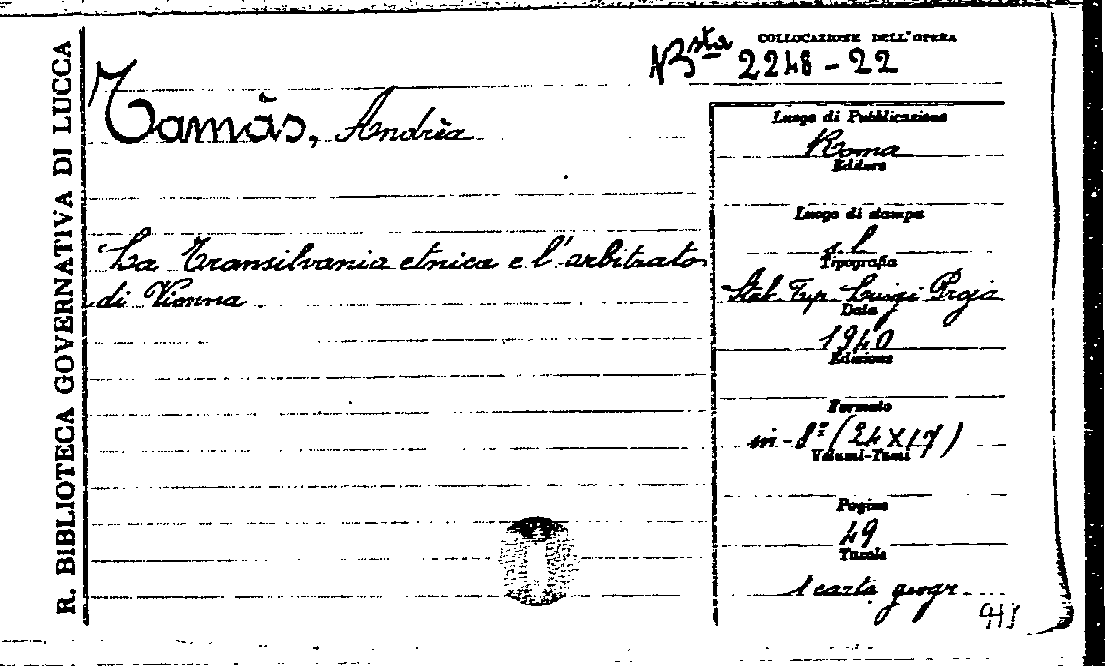 R. BIBLIOTECA GOVERNATIVA DI LUCCA
COLLOCAZIONE DELL'OPERA
Bsta 2248-22
Tamàs, Andrèa
La Transilvania etnica e l'arbitrato
di Vienna
Luogo di Pubblicazione
Roma
Editore
Luogo di stampa
s. l.
Tipografia
Stab. Typ. Luigi Proja
Data
1940
Edizione
Formato
in-8º (24X17)
Volumi-Tomi
Pagine
49
Tavole
1 carta geogr.